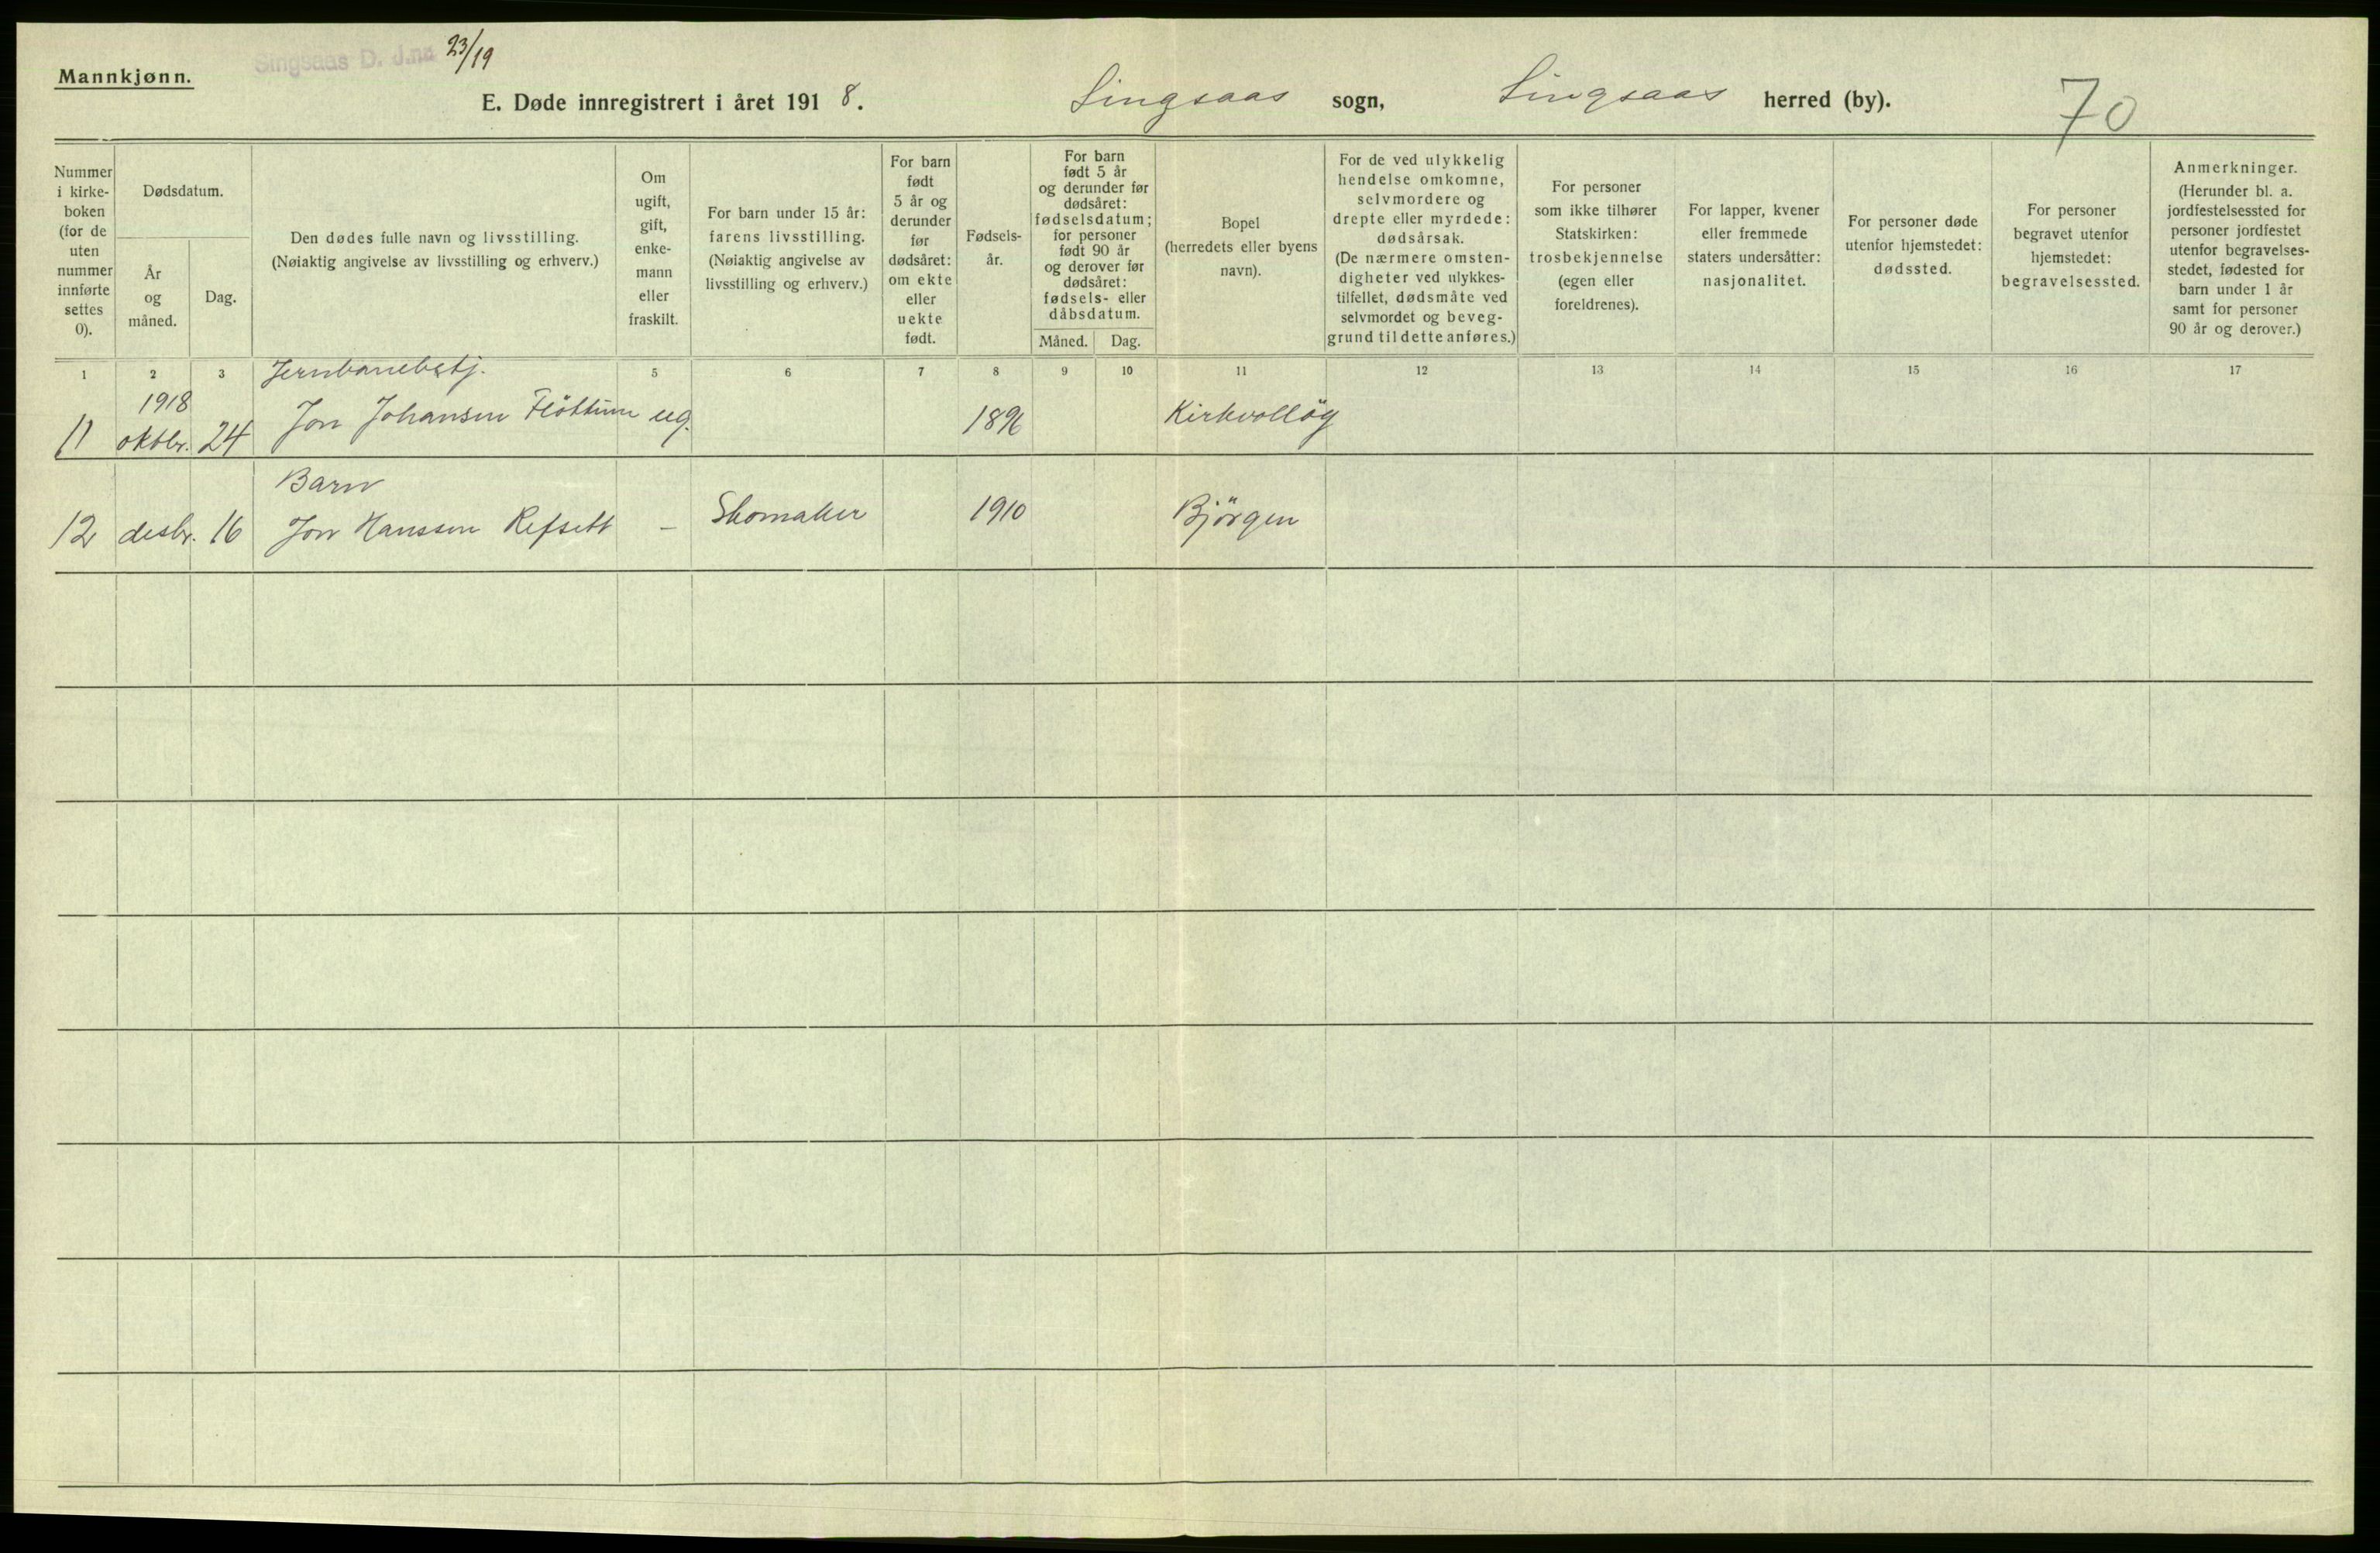 Mannkjønn.
Singsaas D. J.no 23/19
E. Døde innregistrert i året 1918. Singsaas sogn, Singsaas herred (by).
70
Nummer
i kirke-
boken
(for de
uten
nummer
innførte
settes
0).
Dødsdatum.
År
og
måned.
Dag.
Den dødes fulle navn og livsstilling.
(Nøiaktig angivelse av livsstilling og erhverv.)
Om
ugift,
gift,
enke-
mann
eller
fraskilt.
For barn under 15 år:
farens livsstilling.
(Nøiaktig angivelse av
livsstilling og erhverv.)
For barn
født
5 år og
derunder
før
dødsåret:
om ekte
eller
uekte
født.
Fødsels-
år.
For barn
født 5 år
og derunder før
dødsåret:
fødselsdatum;
for personer
født 90 år
og derover før
dødsåret:
fødsels- eller
dåbsdatum.
Måned. Dag.
Bopel
(herredets eller byens
navn).
For de ved ulykkelig
hendelse omkomne,
selvmordere og
drepte eller myrdede:
dødsårsak.
(De nærmere omsten-
digheter ved ulykkes-
tilfellet, dødsmåte ved
selvmordet og beveg-
grund til dette anføres.)
For personer
som ikke tilhører
Statskirken:
trosbekjennelse
(egen eller
foreldrenes).
For lapper, kvener
eller fremmede
staters undersåtter:
nasjonalitet.
For personer døde
utenfor hjemstedet:
dødssted.
For personer
begravet utenfor
hjemstedet:
begravelsessted.
Anmerkninger.
(Herunder bl. a.
jordfestelsessted for
personer jordfestet
utenfor begravelses-
stedet, fødested for
barn under 1 år
samt for personer
90 år og derover.)
1 2 3 5 6 7 8 9 10 11 12 13 14 15 16 17
Jernbanebetj.
1918
11 oktbr. 24 Jon Johansen Flöttum ug. 1896 Kirkvolløg
Barn
12 desbr. 16 Jon Hanssen Refsett — Skomaker 1910 Björgen